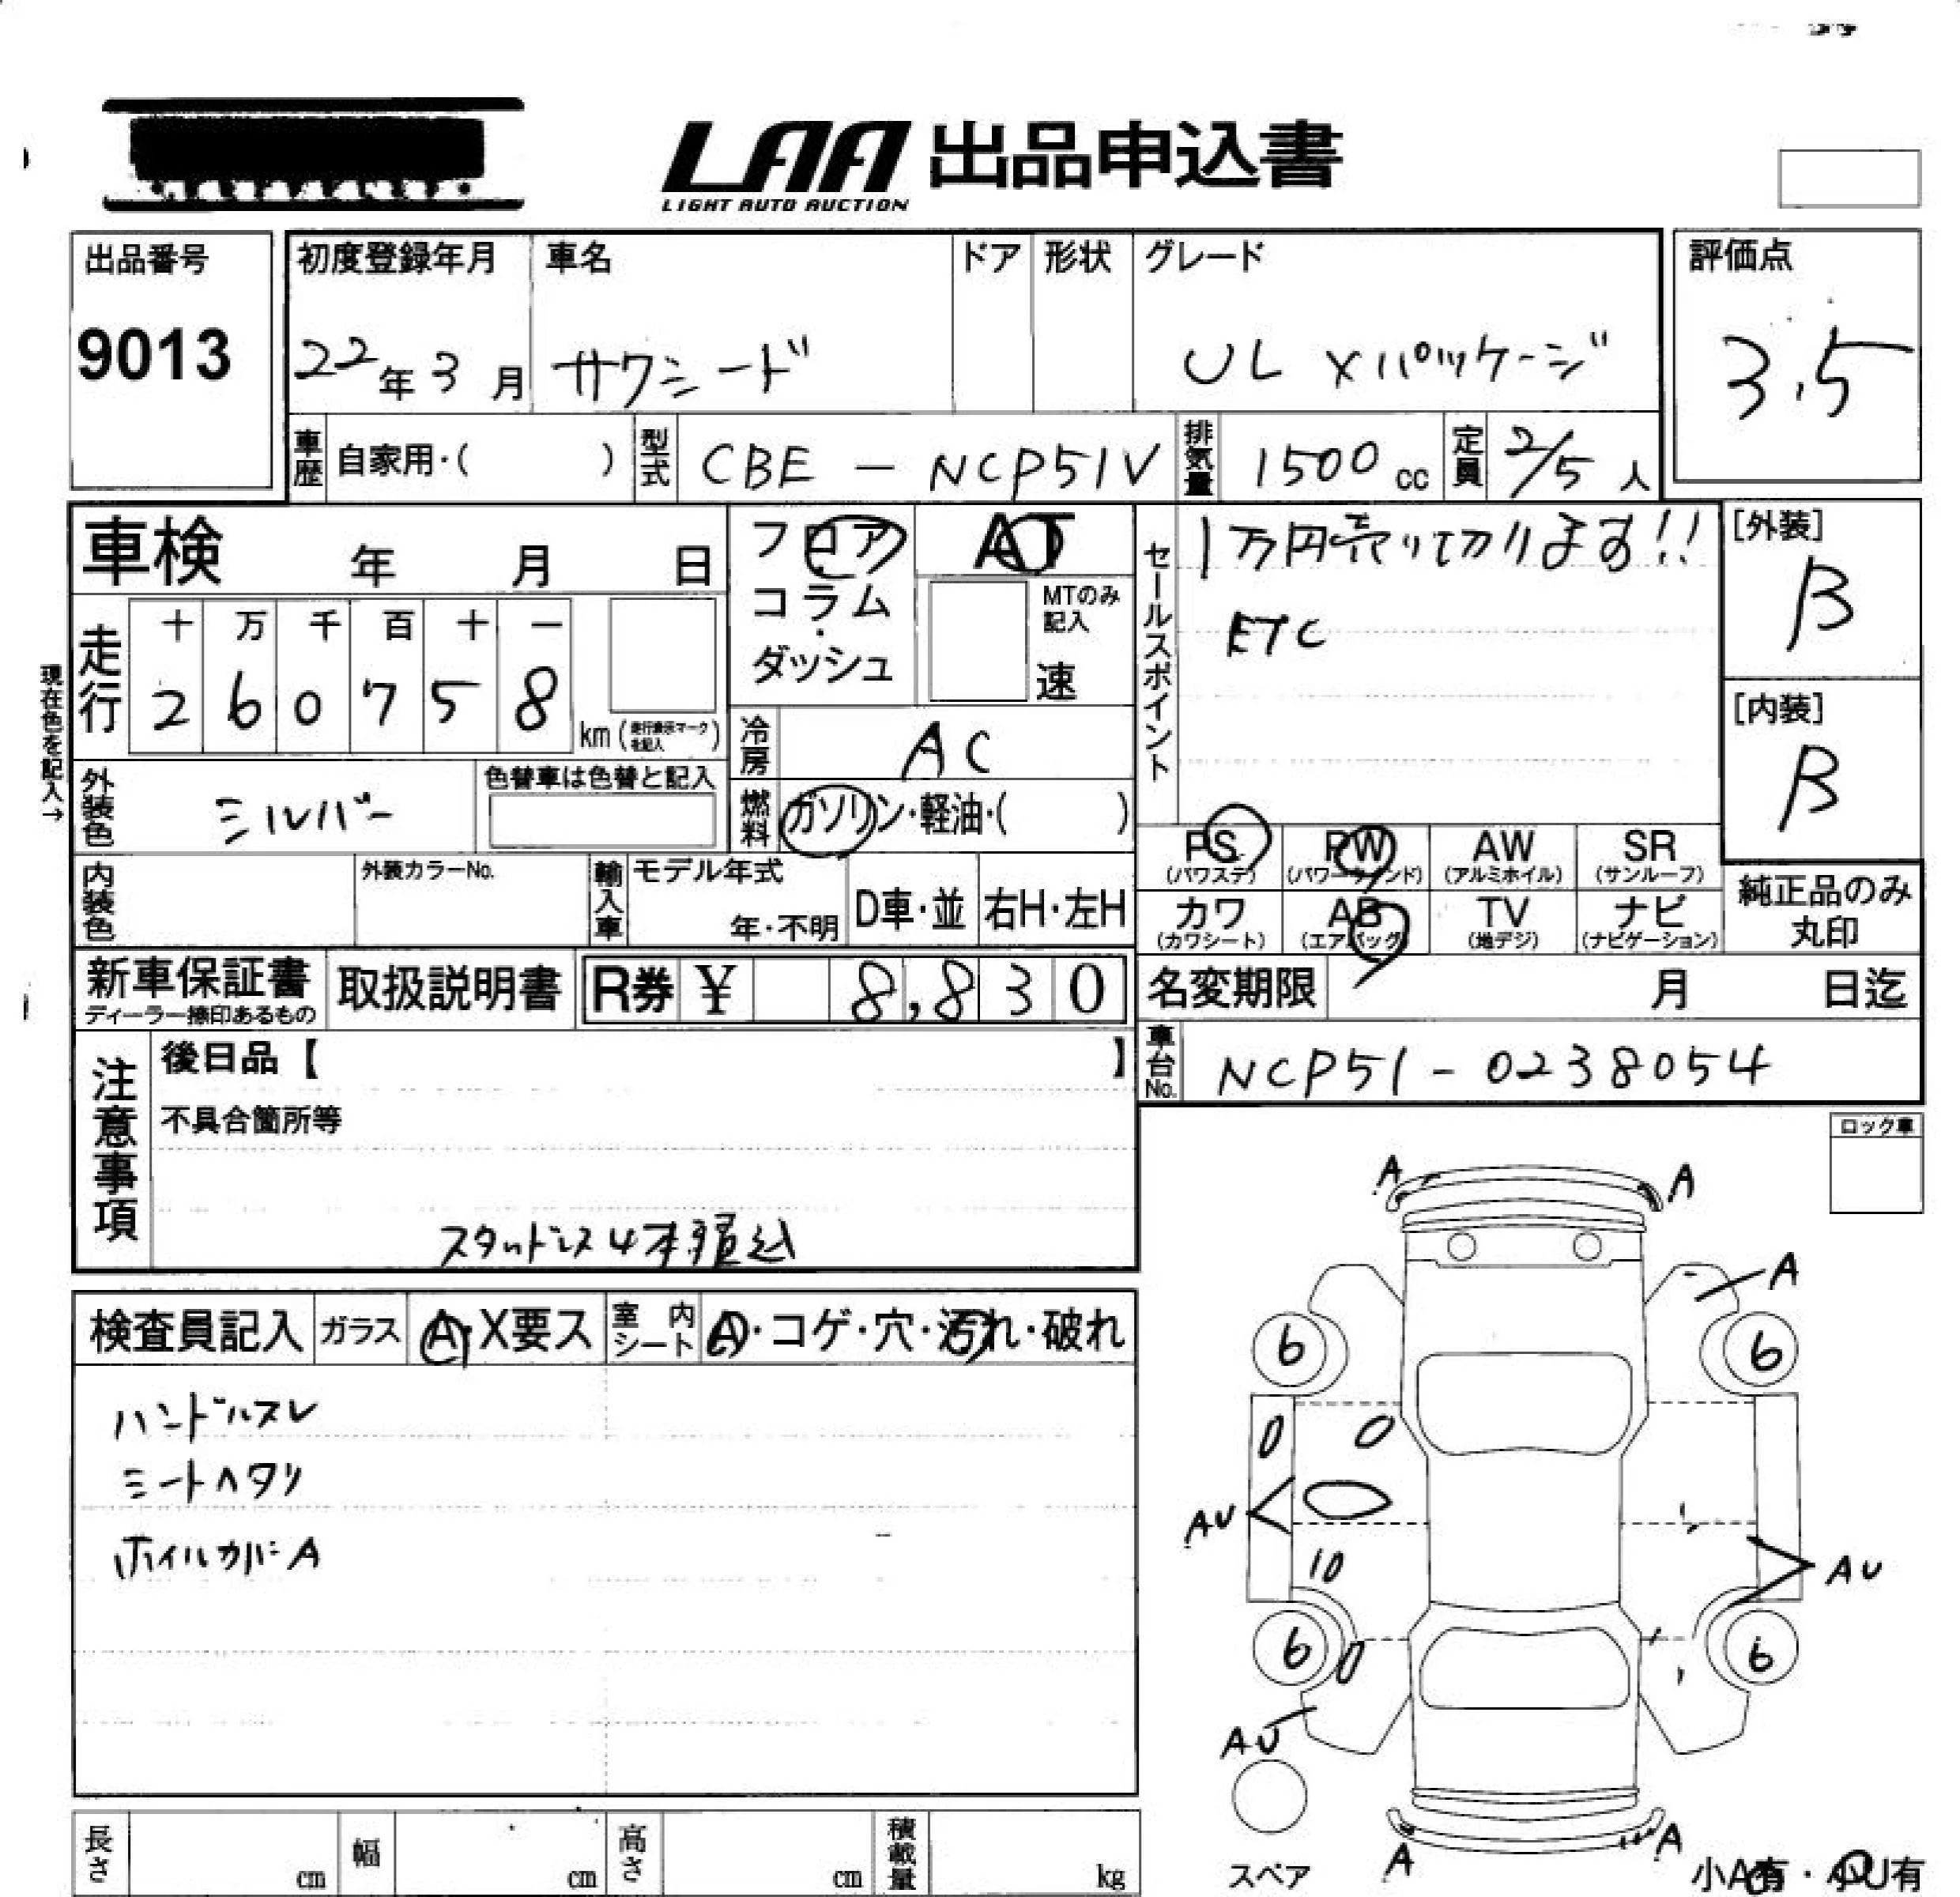 LAA 出品申込書
LIGHT AUTO AUCTION
出品番号
9013
初度登録年月
22年3月
車名
サクシード
ドア
形状
グレード
UL Xパッケージ
評価点
3.5
車歴 自家用・( )
型式 CBE - NCP51V
排気量 1500 cc
定員 2/5 人
車検 年 月 日
フロア・コラム・ダッシュ
AT
MTのみ記入
速
セールスポイント
1万円売り切ります!!
ETC
[外装]
B
[内装]
B
現在色を記入→
走行
十 万 千 百 十 一
2 6 0 7 5 8
km (走行表示マークを記入)
冷房 AC
外装色 シルバー
色替車は色替と記入
燃料 ガソリン・軽油・( )
PS (パワステ)
PW (パワーウインド)
AW (アルミホイル)
SR (サンルーフ)
内装色
外装カラーNo.
輸入車
モデル年式
年・不明
D車・並
右H・左H
カワ (カワシート)
AB (エアバッグ)
TV (地デジ)
ナビ (ナビゲーション)
純正品のみ
丸印
新車保証書
ディーラー捺印あるもの
取扱説明書
R券 ¥ 8,830
名変期限 月 日迄
車台No. NCP51-0238054
注意事項
後日品【 】
不具合箇所等
スタットレス4本積込
ロック車
検査員記入
ガラス A・X要ス
室内シート A・コゲ・穴・汚れ・破れ
ハンドルスレ
シートヘタリ
ホイルカバーA
A
A
A
6
6
AU
10
AU
6
6
AU
A
A
スペア
小A有・小U有
長さ cm
幅 cm
高さ cm
積載量 kg